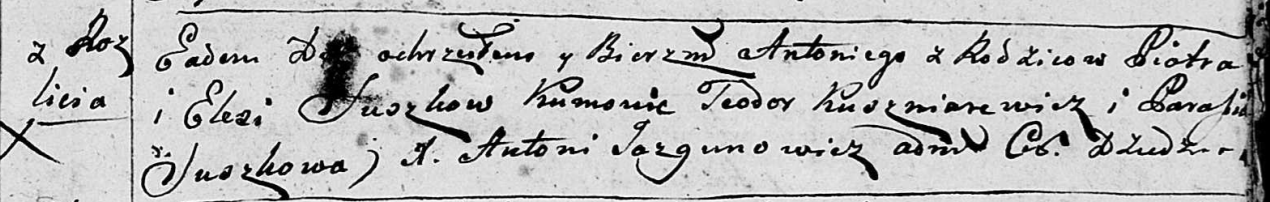 z Roz
licia
Eadem Die ochrzciłem y Bierzm Antoniego z Rodzicow Piotra
i Elesi Suszkow Kumowie Teodor Kuszniarewicz i Parasia
Suszkowa) X. Antoni Jazgunowicz adm Cb.